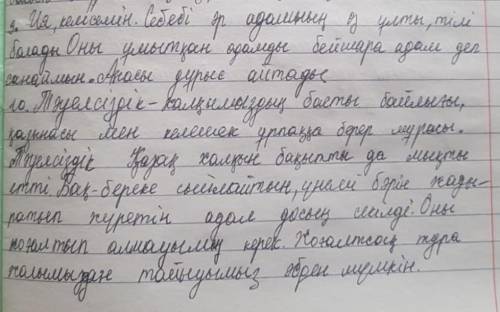 9. Ия, келісемін. Себебі әр адамның өз ұлты, тілі
болады. Оны ұмытқан адамды бейшара адам деп
санаймын. Анасы дұрыс айтады.
10. Тәуелсіздік - халқымыздың басты байлығы,
қазынасы мен келешек ұрпаққа берер мұрасы.
Тәуелсіздік Қазақ халқын бақытты да мықты
етті. Бақ-береке сыйлайтын, үнемі бәрін жады-
ратып жүретін адам досың секілді. Оны
жоғалтып алмауымыз керек. Жоғалтсақ тура
жолымыздан тайуымыз әбден мүмкін.